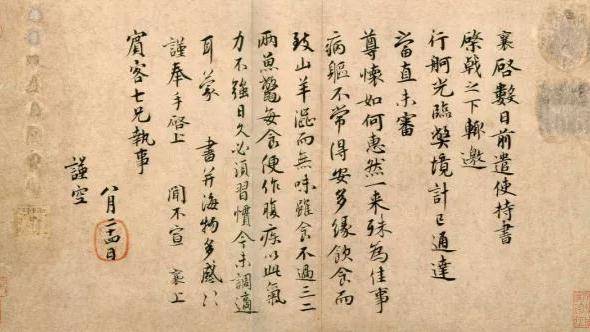 襄啓數日前遣使持書
棨戟之下輙邀
行舸光臨弊境計已通達
當直未審
尊懷如何惠然一来殊為佳事
病軀不常得安多緣飲食而
致山羊澀而無味雖食不過三二
兩魚鱉每食便作腹疾以此氣
力不強日久必須習慣今未調適
耳蒙 書并海物多感多感
謹奉手啓上 聞不宣 襄上
賓客七兄執事
八月二十四日
謹空